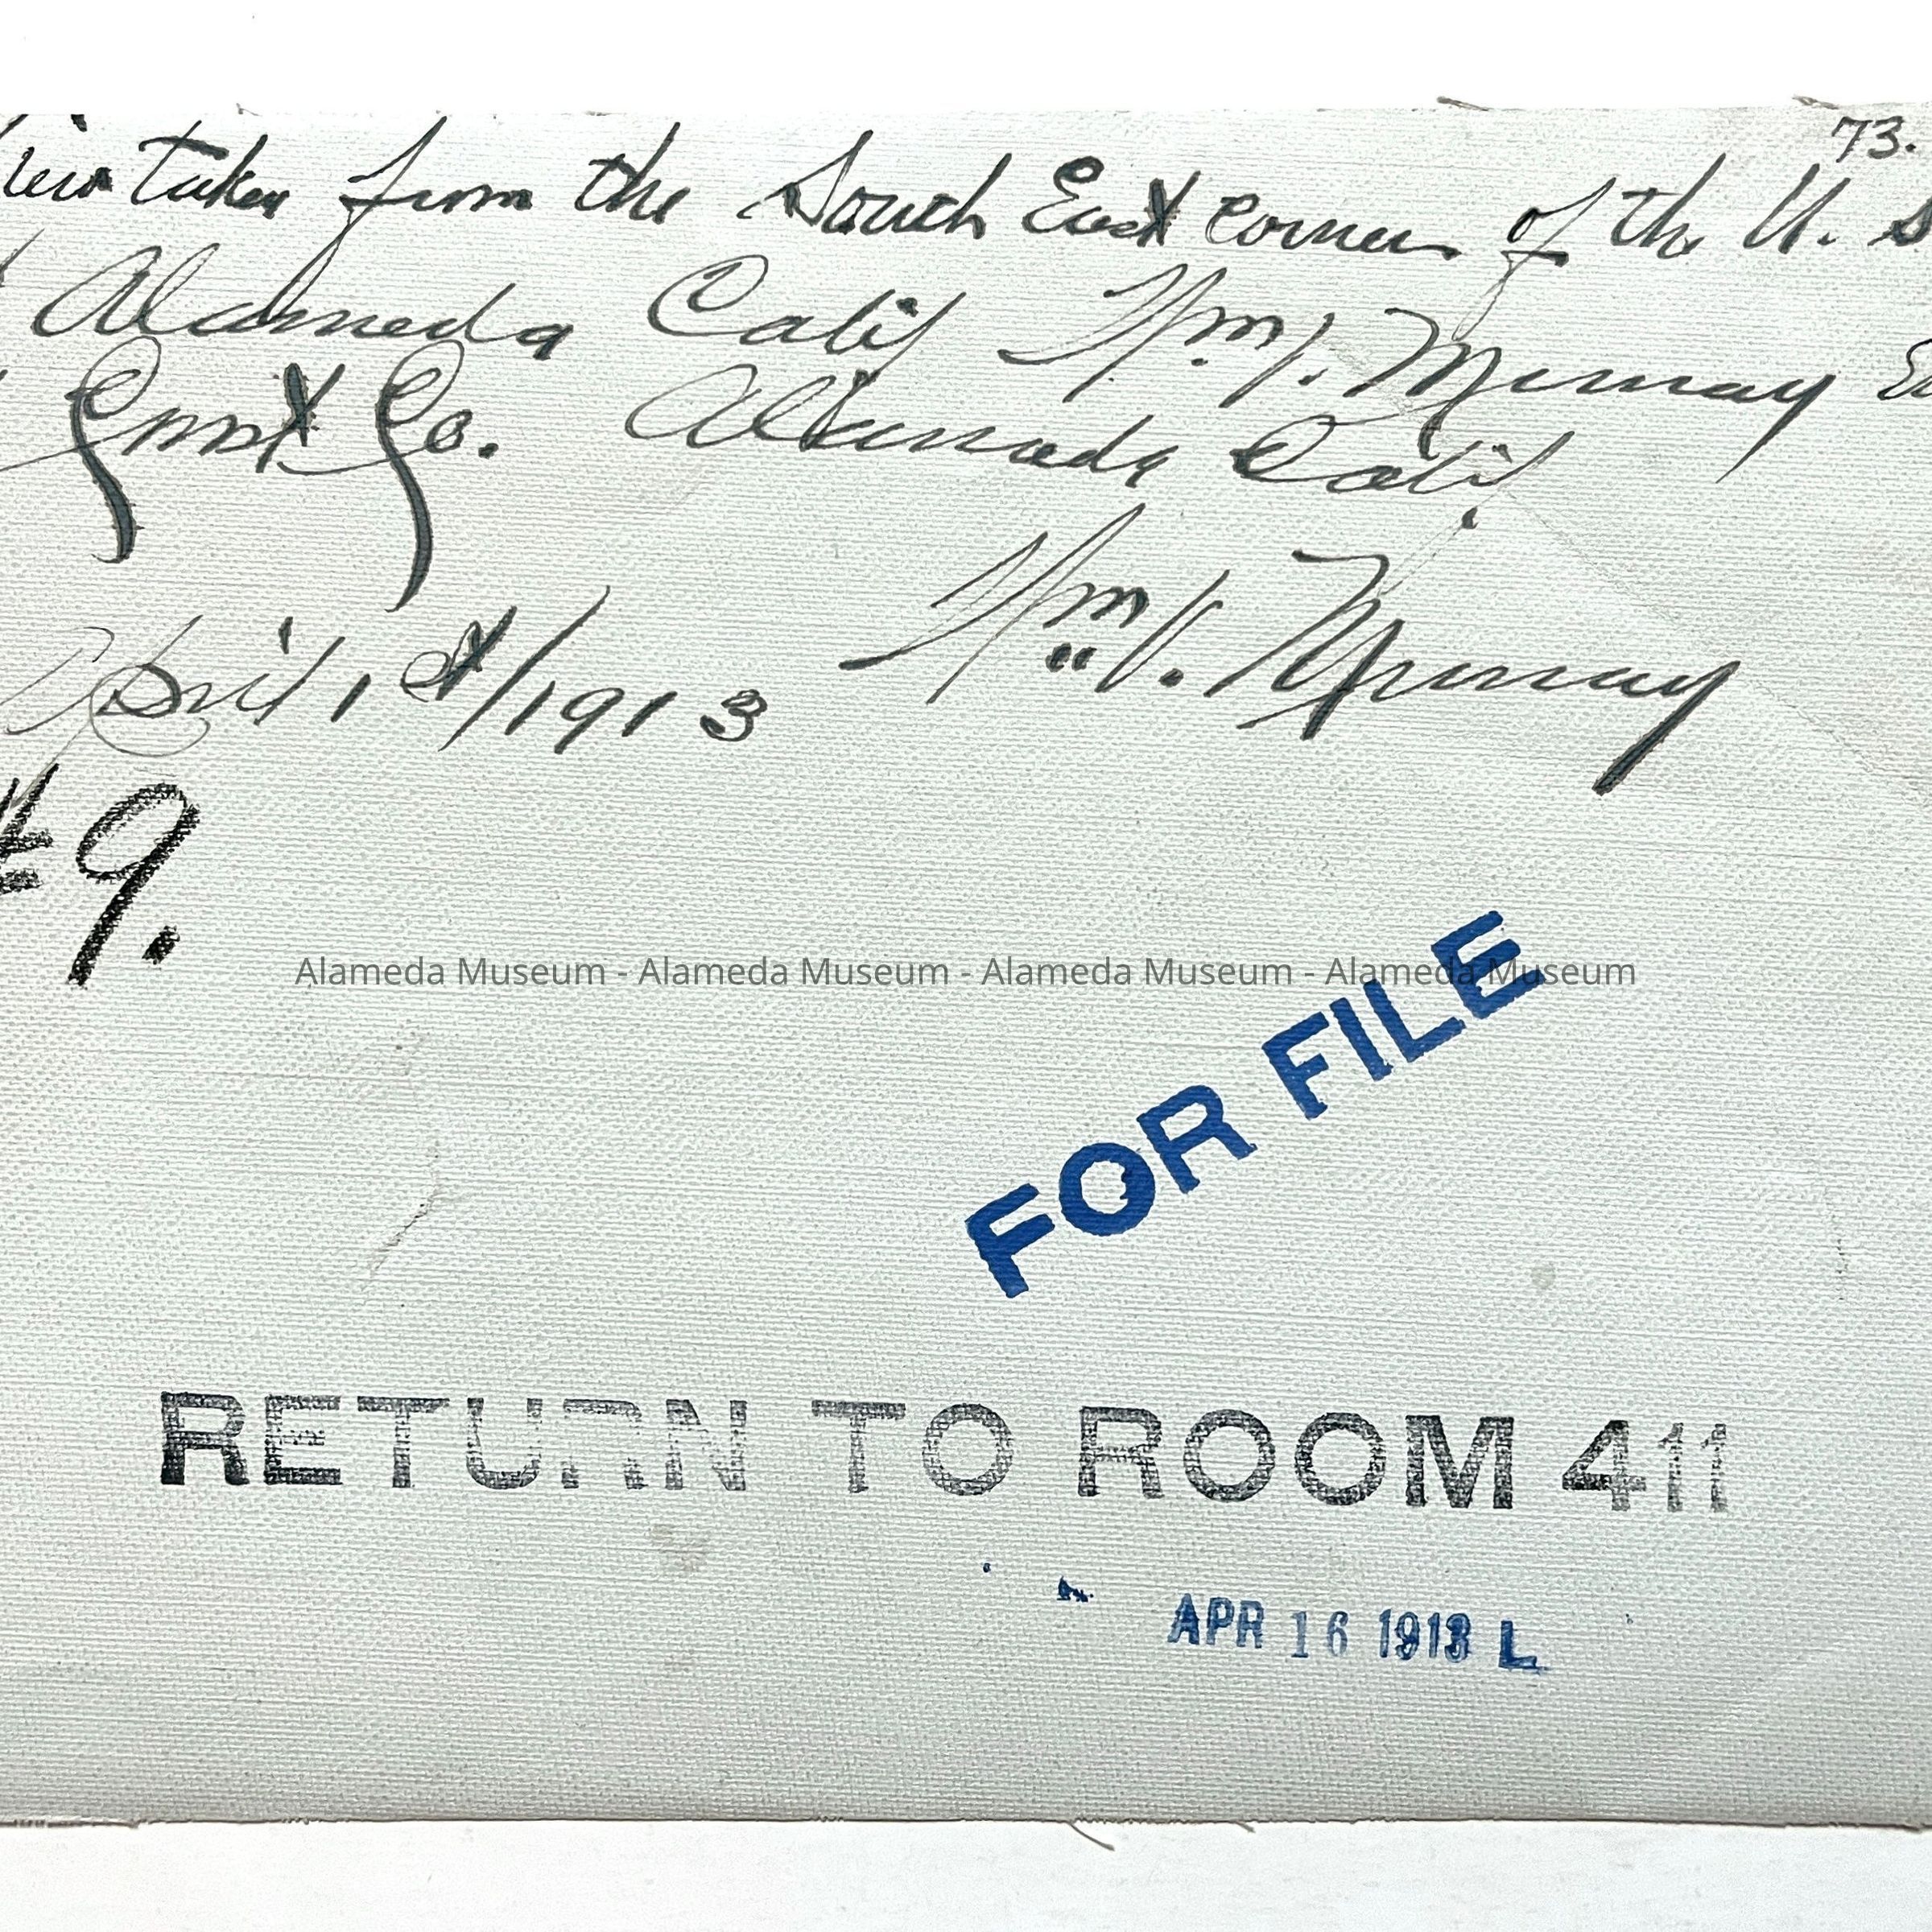 73.
taken from the South East corner of the U. S
Alameda Calif Wm. V. Murray
Const Co. Alameda Calif.
April 1st/1913 Wm. V. Murray
#9.
Alameda Museum - Alameda Museum - Alameda Museum - Alameda Museum
FOR FILE
RETURN TO ROOM 411
APR 16 1913 L